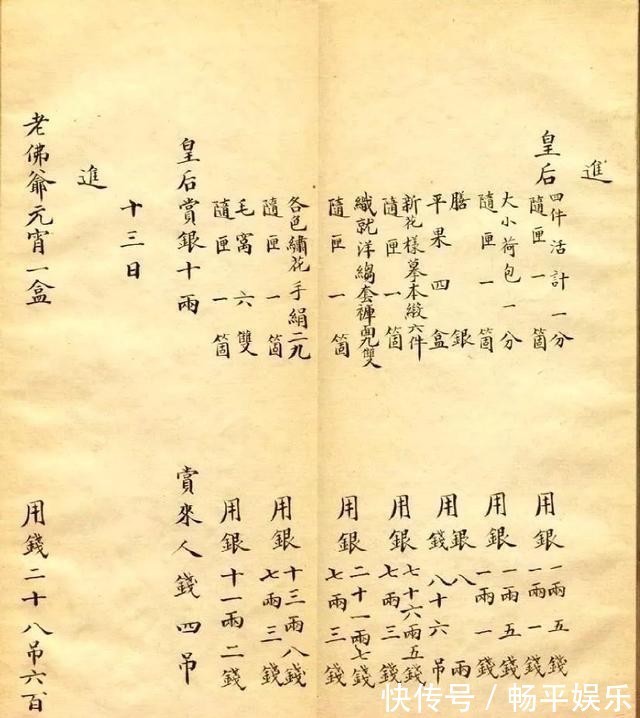 進
皇后
四件活計一分
隨匣一箇
用銀
一兩五錢
一兩一錢
大小荷包一分
隨匣一箇
用銀
一兩五錢
一兩一錢
膳銀
平果四盒
用銀八兩
用錢八十六吊
新花樣摹本緞六件
隨匣一箇
用銀
七十六兩五錢
七兩三錢
織就洋縐套褲面九雙
隨匣一箇
用銀
二十一兩七錢
七兩三錢
各色繡花手絹二九
隨匣一箇
用銀
十三兩八錢
七兩三錢
毛窩六雙
隨匣一箇
用銀十一兩二錢
皇后賞銀十兩
賞來人錢四吊
十三日
進
老佛爺元宵一盒
用錢二十八吊六百
快传号／畅平娱乐